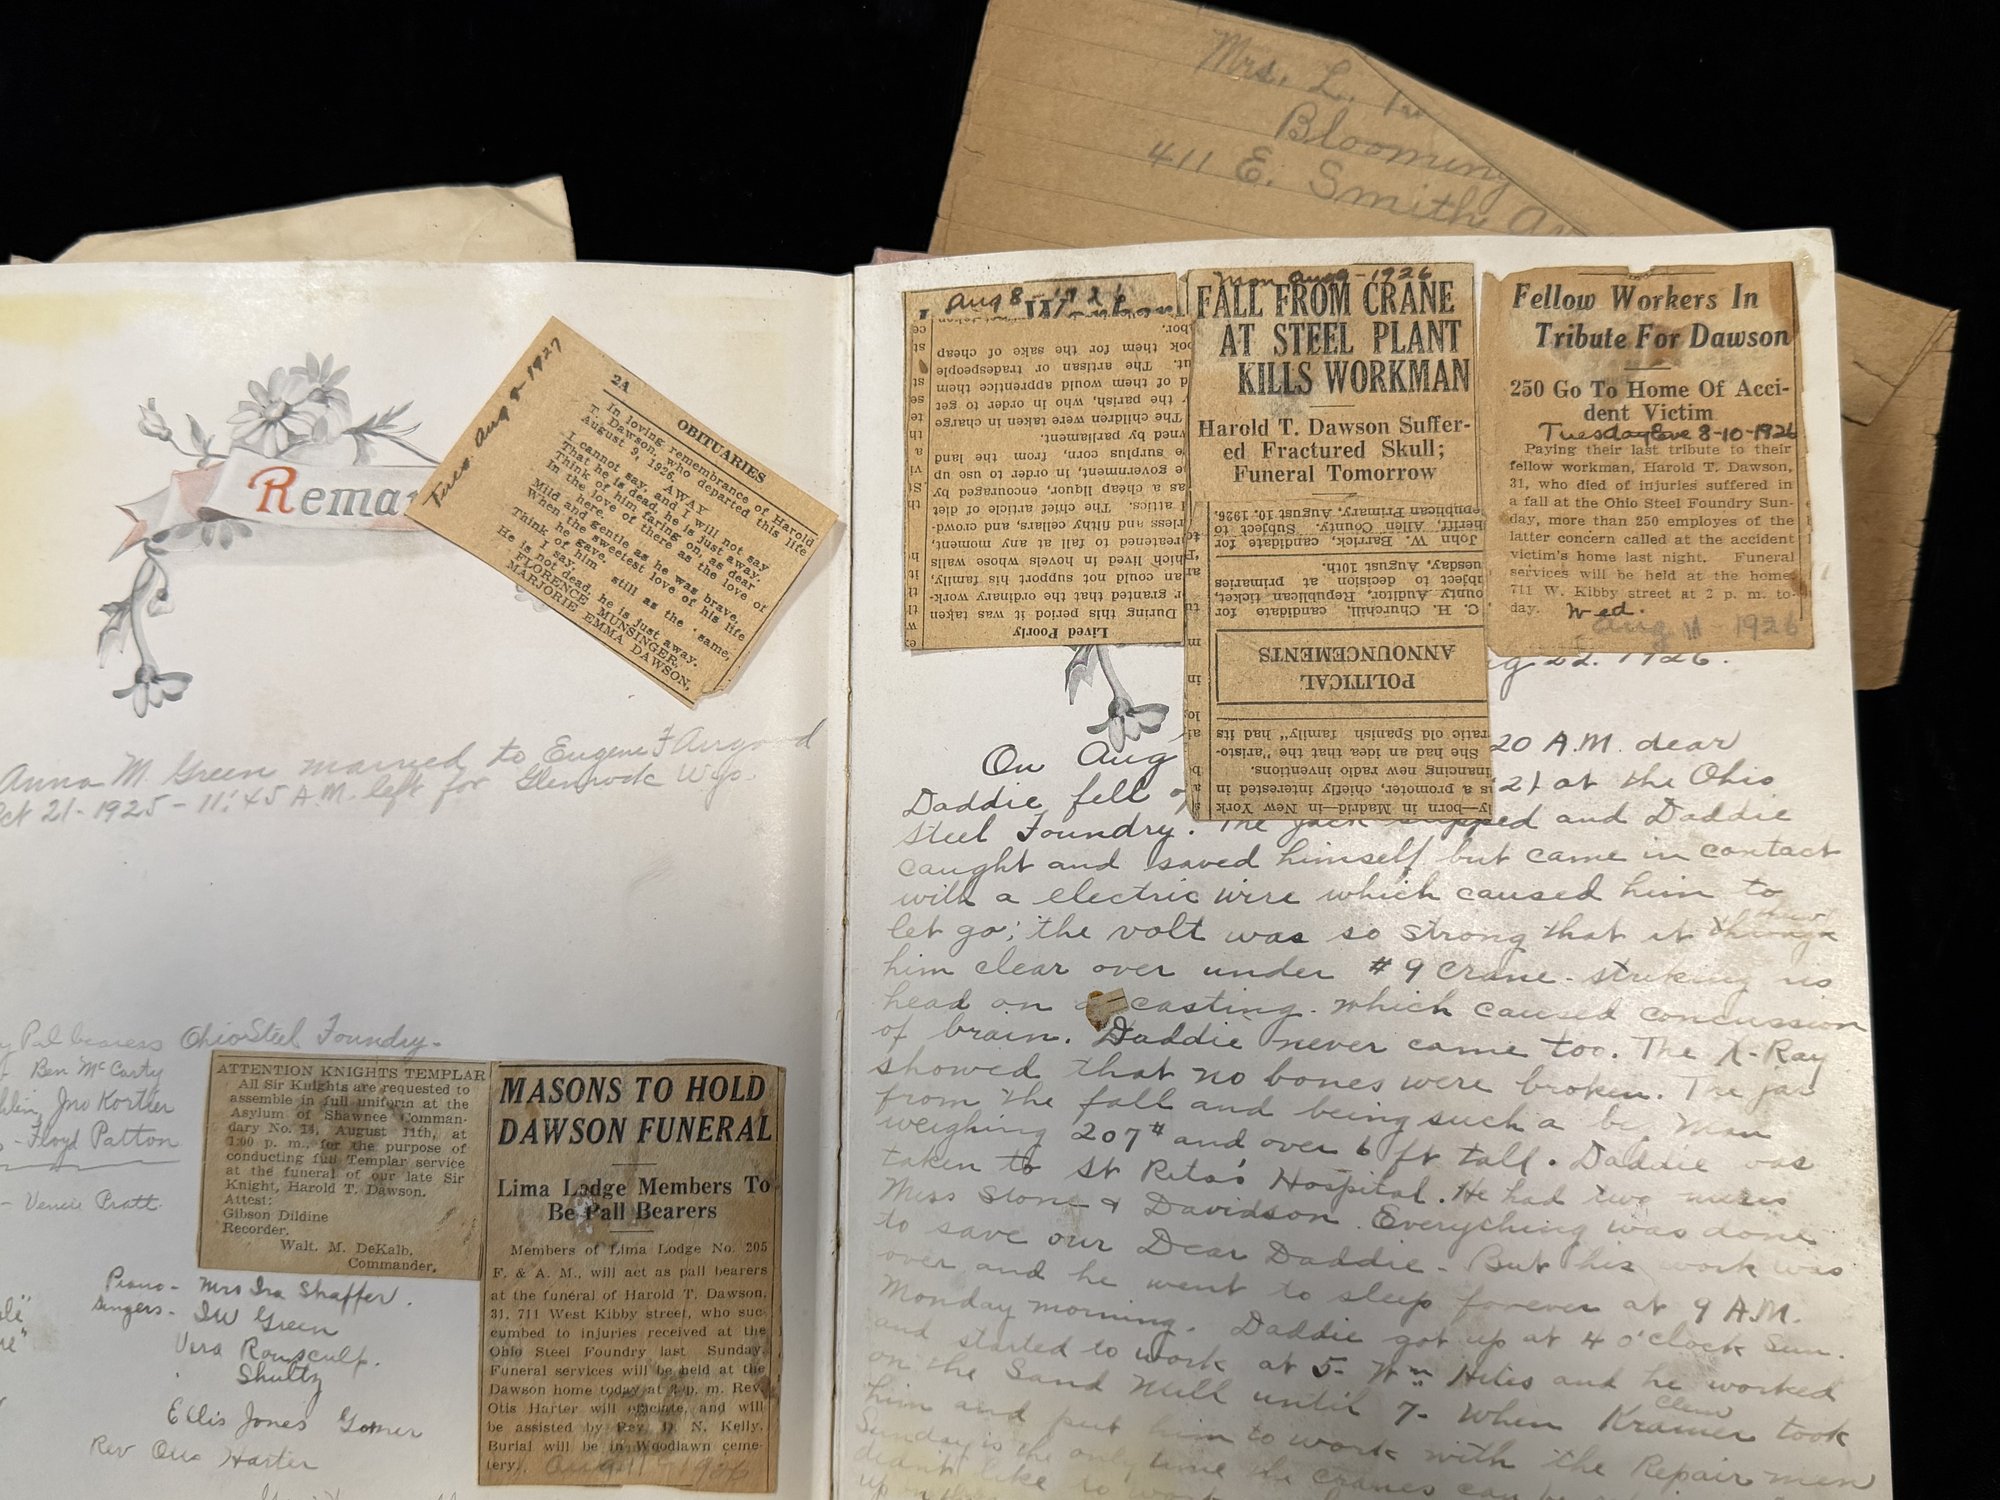 Mrs. L.
Blooming
411 E. Smith
Remar
Tues. Aug 9-1927
2A
OBITUARIES
In loving remembrance of Harold
T. Dawson, who departed this life
August 9, 1926.
AWAY
I cannot say, and I will not say
That he is dead, he is just away.
Think of him faring on, as dear
In the love of there as the love of
here.
Mild and gentle as he was brave,
When the sweetest love of his life
he gave.
Think of him still as the same,
I say,
He is not dead, he is just away.
FLORENCE MUNSINGER,
MARJORIE EMMA DAWSON,
Anna M. Green married to Eugene F Augood
Oct 21-1925-11:45 A.M. left for Glenrock Wyo.
Pal bearers Ohio Steel Foundry-
Ben McCarty
Jno Kortier
- Floyd Patton
- Veneie Pratt
ATTENTION KNIGHTS TEMPLAR
All Sir Knights are requested to
assemble in full uniform at the
Asylum of Shawnee Comman-
dary No. 14, August 11th, at
1:00 p. m., for the purpose of
conducting full Templar service
at the funeral of our late Sir
Knight, Harold T. Dawson.
Attest:
Gibson Dildine
Recorder.
Walt. M. DeKalb,
Commander,
MASONS TO HOLD
DAWSON FUNERAL
Lima Lodge Members To
Be Pall Bearers
Members of Lima Lodge No. 205
F. & A. M., will act as pall bearers
at the funeral of Harold T. Dawson,
31, 711 West Kibby street, who suc-
cumbed to injuries received at the
Ohio Steel Foundry last Sunday.
Funeral services will be held at the
Dawson home today at 2 p. m. Rev.
Otis Harter will officiate, and will
be assisted by Rev. D. N. Kelly.
Burial will be in Woodlawn ceme-
tery.
Aug 11 1926
Piano - Mrs Ira Shaffer.
Singers - IW Green
Vera Rousculp.
Shultz
Ellis Jones Gomer
Rev Otis Harter
Aug 8-1926
bor.
ook them for the sake of cheap
ut. The artisan or tradespeople
d of them would apprentice them
y the parish, who in order to get
The children were taken in charge
wned by parliament.
e surplus corn, from the land
e government, in order to use up
as a cheap liquor, encouraged by
l attics. The chief article of diet
rless and filthy cellars, and crowd-
reatened to fall at any moment,
hich lived in hovels whose walls
an could not support his family,
r granted that the ordinary work-
During this period it was taken
Lived Poorly
Mon Aug 9-1926
FALL FROM CRANE
AT STEEL PLANT
KILLS WORKMAN
Harold T. Dawson Suffer-
ed Fractured Skull;
Funeral Tomorrow
epublican Primary, August 10, 1926.
heriff, Allen County. Subject to
John W. Barrick, candidate for
uesday, August 10th.
ubject to decision at primaries
ounty Auditor, Republican ticket,
C. H. Churchill, candidate for
ANNOUNCEMENTS
POLITICAL
ratic old Spanish family" had its
She had an idea that the "aristo-
inancing new radio inventions.
s a promoter, chiefly interested in
ly—born in Madrid—in New York
Fellow Workers In
Tribute For Dawson
250 Go To Home Of Acci-
dent Victim
Tuesday Eve 8-10-1926
Paying their last tribute to their
fellow workman, Harold T. Dawson,
31, who died of injuries suffered in
a fall at the Ohio Steel Foundry Sun-
day, more than 250 employes of the
latter concern called at the accident
victim's home last night. Funeral
services will be held at the home,
711 W. Kibby street at 2 p. m. to-
day.
Wed.
Aug 11 - 1926
ug 22. 1926.
On Aug 20 A.M. dear
Daddie fell 21 at the Ohio
Steel Foundry. The jack slipped and Daddie
caught and saved himself but came in contact
with a electric wire which caused him to
let go; the volt was so strong that it threw
him clear over under #9 Crane - striking his
head on a casting. which caused concussion
of brain. Daddie never came too. The X-Ray
showed that no bones were broken. The jar
from the fall and being such a big man
weighing 207# and over 6 ft tall. Daddie was
taken to St Rita's Hospital. He had two nurses
Miss Stone & Davidson. Everything was done
to save our Dear Daddie - But his work was
over and he went to sleep forever at 9 A.M.
Monday morning. Daddie got up at 4 o'clock Sun.
and started to work at 5- Wm Hiles and he worked
on the Sand Mill until 7- When Clem Kramer took
him and put him to work with the Repair men
Sunday is the only time the cranes can be
didn't like to work
up on